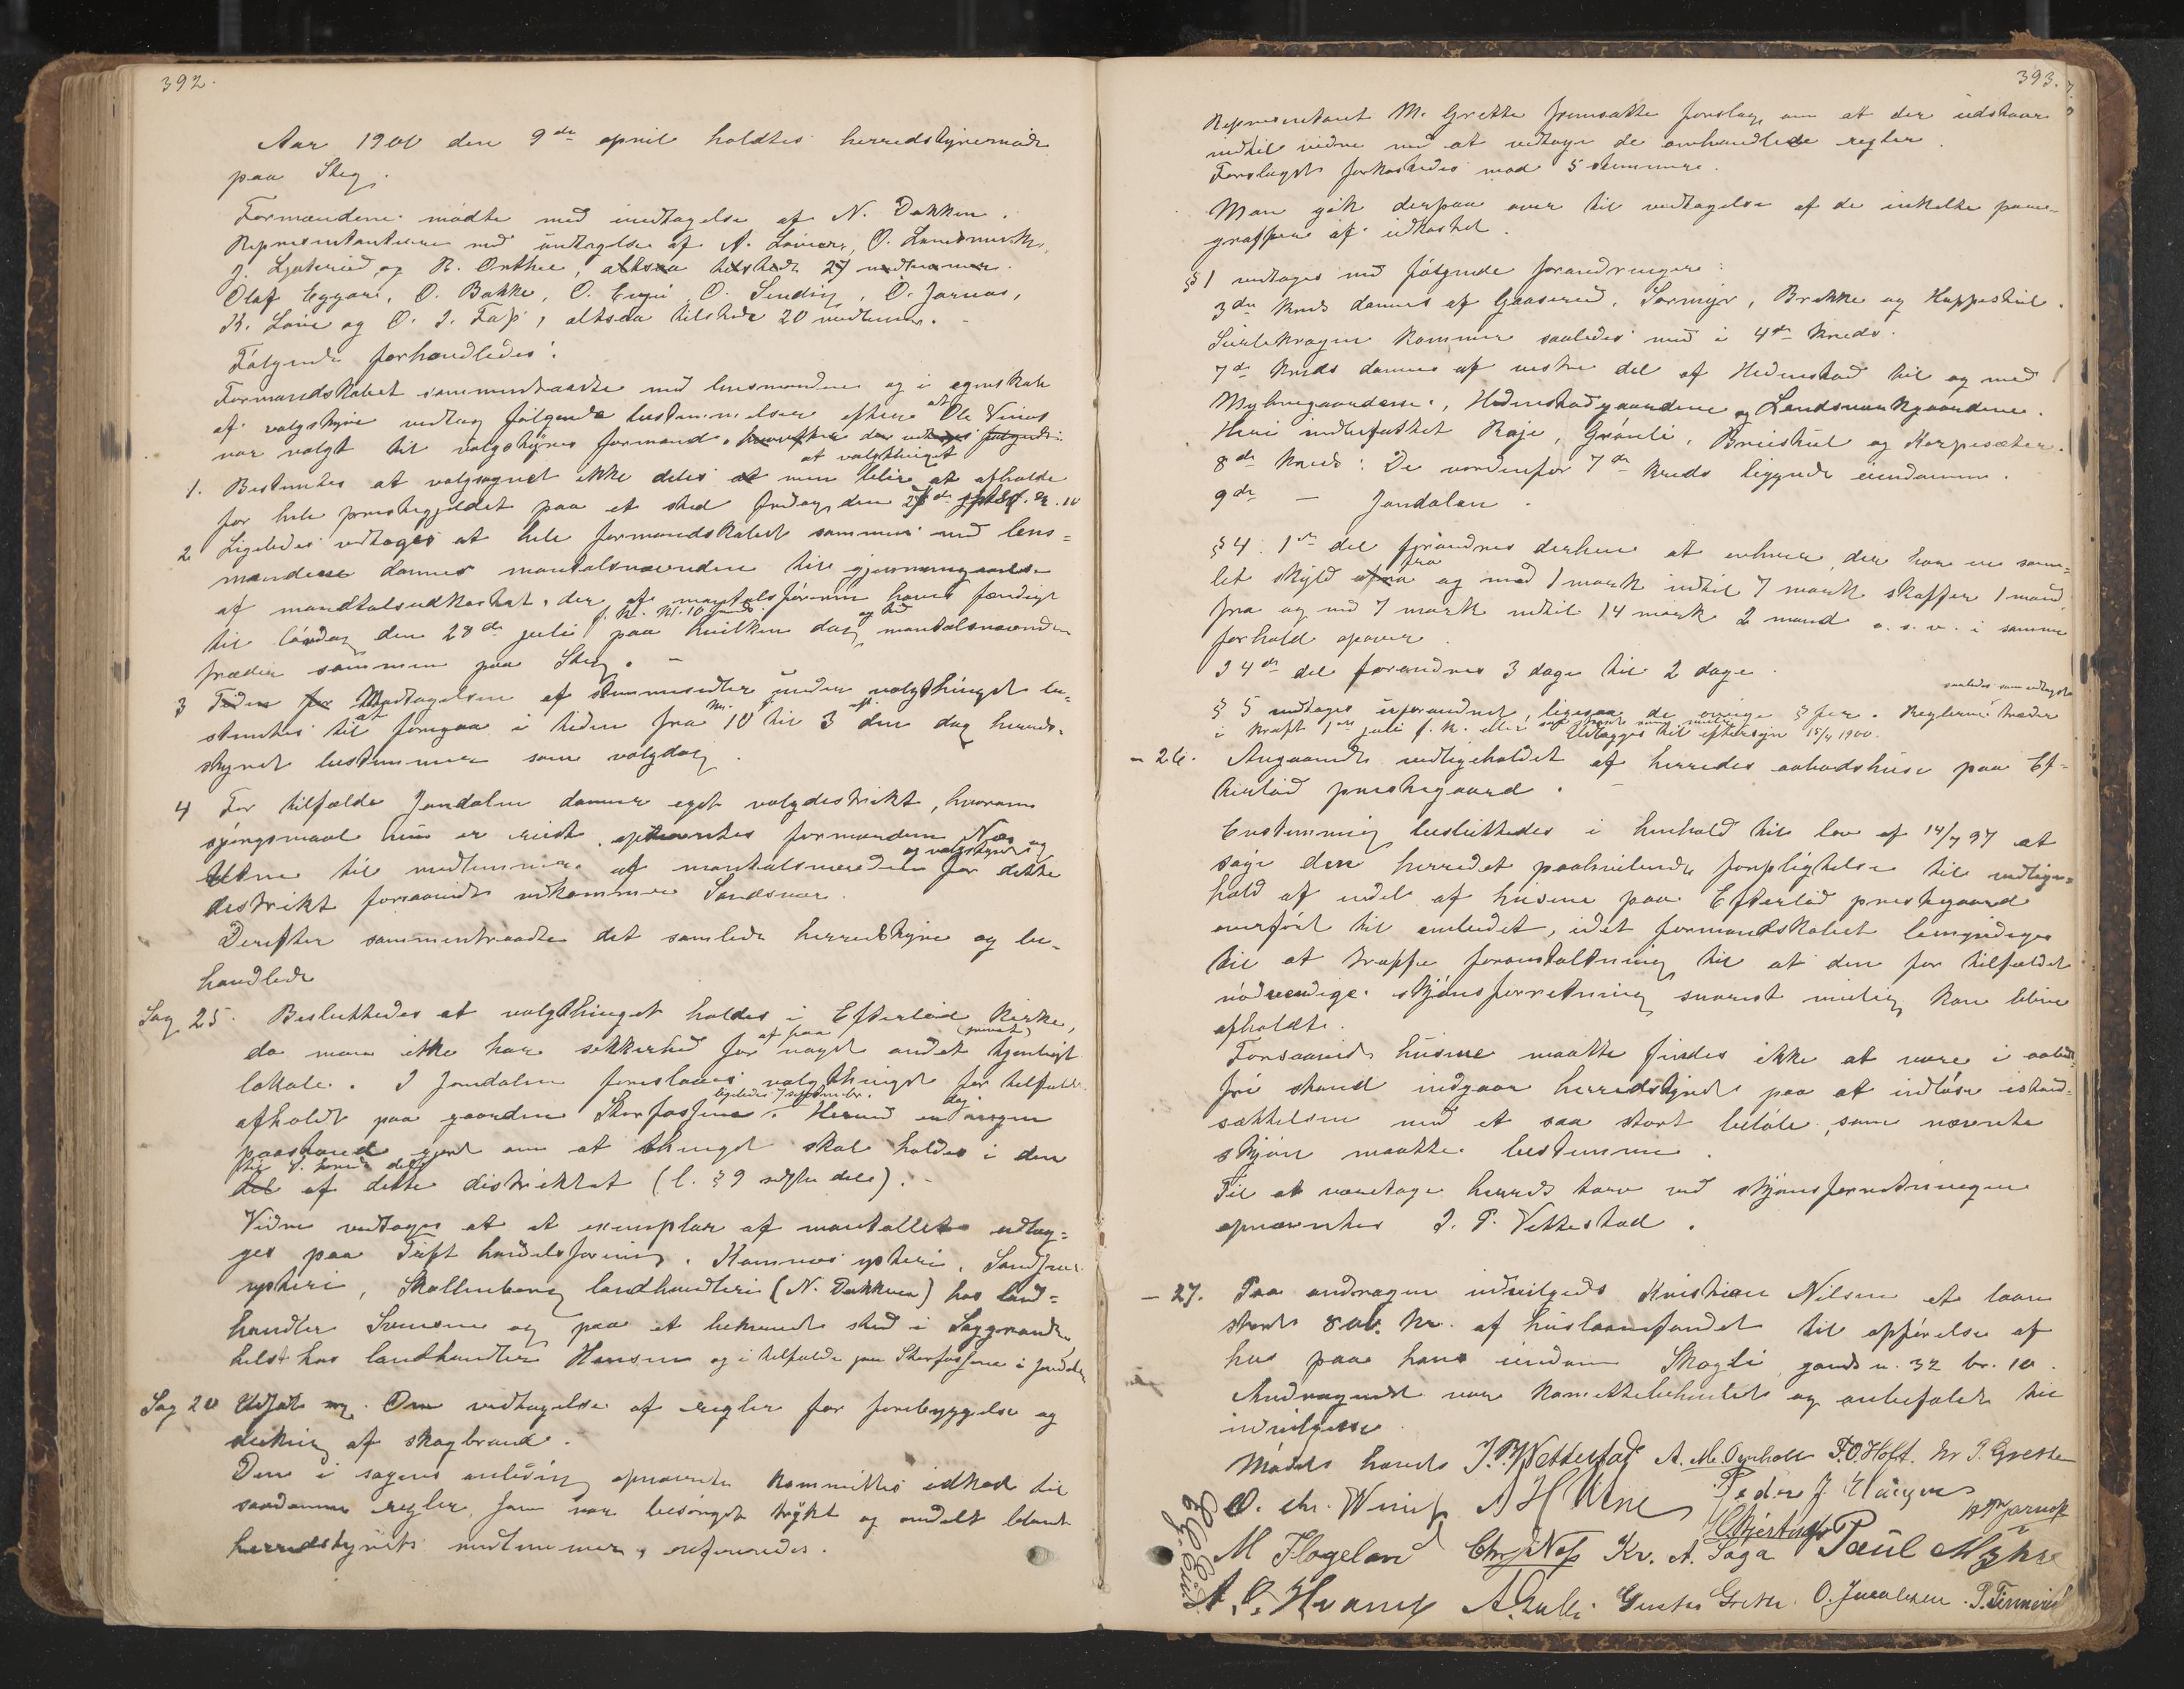 392.
Aar 1900 den 9de april holdtes herredstyremøde
paa Steg.
Formændene mødte med undtagelse af N. Dakken.
Repræsentanterne med undtagelse af A. O. Landsmerk,
J. og R. Orthee, altsaa tilstede 27 medlemmer.
Olaf Eggare, O. Bakke, O. O. Sending, O. Jarnæs,
K. Laie og O. J. altsaa tilstede 20 medlem.
Følgende forhandledes:
Formandskabet sammentraadte med lensmanden og i egenskab
af valgstyre vedtog følgende bestemmelser efterat Ole Vinæs
var valgt til valgstyres formand. hvorefter der følgende:
1. Bestemtes at valgsognet ikke deles at men blir at valgthinget at afholde
for hele prestegjeldet paa et sted fredag den kl. 10
2 Ligeledes vedtoges at hele formandskabet sammen med lens=
mændene danner mantalsnævnden til gjennemgaaelse
af mandtalsudkastet, der af mantalsføreren haves færdigt
til lørdag den 28de juli f. kl. 10 paa hvilken dag og tid mantalsnævnden
træder sammen paa Steg. –
3 Tiden for Modtagelsen af stemmesedler under valgthinget be-
stemtes til at foregaa i tiden fra kl. 10 til 3 den dag herreds-
styret bestemmer som valgdag.
4 For tilfælde Jondalen danner eget valgdistrikt, hvorom
spørgsmaal nu er reist, opnævntes formændene Næs og
Utne til medlemmer af mantalsnævnden og valgstyret for dette
distrikt forsaavidt vedkommer Sandsvær.
Derefter sammentraadte det samlede herredstyre og be-
handlede
Sag 25. Besluttedes at valgthinget holdes i Efteløt kirke,
da man ikke har sikkerhed for at faa noget andet (privat) tjenligt
lokale. I Jondalen foreslaaes valgthinget for tilfælde
afholdt paa gaarden Storfossen ligeledes 7 september. Herved er dog ingen
paastand gjort om at thinget skal holdes i den
del af dette distriktet (l. § 9 sidste del). –
Videre vedtoges at et exemplar af mantallet udlæg-
ges paa Tuft handelsforening, Komnes ysteri, Sandsvær
ysteri, Skollenborg landhandleri (N. Dakken) hos land=
handler Svensen og paa et bekvemt sted i
helst hos landhandler Hansen og i tilfælde paa Storfossen i Jondalen
Sag 20 Udsat sag. Om vedtagelse af regler for forebyggelse og
slukning af skogbrand.
Den i sagens anledning opnævnte kommittes udkast til
saadanne regler, som var besørget trykt og omdelt blandt
herredstyrets medlemmer, refereredes.
393.
Repræsentant M. Grette fremsatte forslag om at der udstaar
indtil videre med at vedtage de omhandlede regler.
Forslaget forkastedes mod 5 stemmer.
Man gik derpaa over til vedtagelse af de enkelte para-
graffer af udkastet.
§ 1 vedtoges med følgende forandringer:
3de kreds dannes af Gaaserud, Sørmyr, Brekke og Kuppeskil.
kommer saaledes med i 4de kreds.
7de kreds dannes af vestre del af Hedenstad til og med
Myhregaardene, Hedenstadgaardene og Landsværkgaardene.
Heri indbefattet Raje, Grønli, Breiskil og Korpesæter.
8de kreds: De nordenfor 7de kreds liggende eiendomme.
9de — Jondalen.
§ 4. 1ste del forandres derhen at enhver, der har en sam-
let skyld fra og med 1 mark indtil 7 mark skaffer 1 mand,
fra og med 7 mark indtil 14 mark 2 mand o. s. v. i samme
forhold opover.
I 4de del forandres 3 dage til 2 dage.
§ 5 vedtoges uforandret, ligesaa de øvrige § fer. Reglerne saaledes som vedtaget træder
i kraft 1ste juli f. k. eller saa snart som muligt. Udlægges til eftersyn 15/4 1900.
– 26. Angaaende vedligeholdet af herredes aabodshuse paa Ef-
teløt prestegaard. –
Enstemmig besluttedes i henhold til lov af 14/7 97 at
søge den herredet paahvilende forpligtelse til vedlige=
hold af endel af husene paa Efteløt prestegaard
overført til embedet, idet formandskabet bemyndiges
til at træffe foranstaltning til at den for tilfældet
nødvendige skjønsforretning snarest mulig kan blive
afholdt.
Forsaavidt husene maatte findes ikke at være i aabods-
fri stand indgaar herredstyret paa at indløse istand-
sættelsen med et saa stort beløb, som nævnte
skjøn maatte bestemme.
Til at varetage herreds tarv ved skjønsforretningen
opnævntes J. P. Vettestad.
– 27. Paa andragen indvilgedes Kristian Nilsen et laan
stort 800 kr. af huslaansfondet til opførelse af
hus paa hans eiendom Skogli, gaards n. 32 br. 10.
Andragendet var komittebehandlet og anbefalet til
indvilgelse.
Mødet hævet. J. P. Wettestad A. M. Ornholt F. O. Hoft. Kr J. Grette
O. Chr. Winæs A H Utne Peder J. Jarnæs
M Flogeland Chr. Næs Kr. A. Saga Paul Myhre
A. O. Hvamb A. Lulli Gustav Grette O. Jacobsen P. Tinnerud